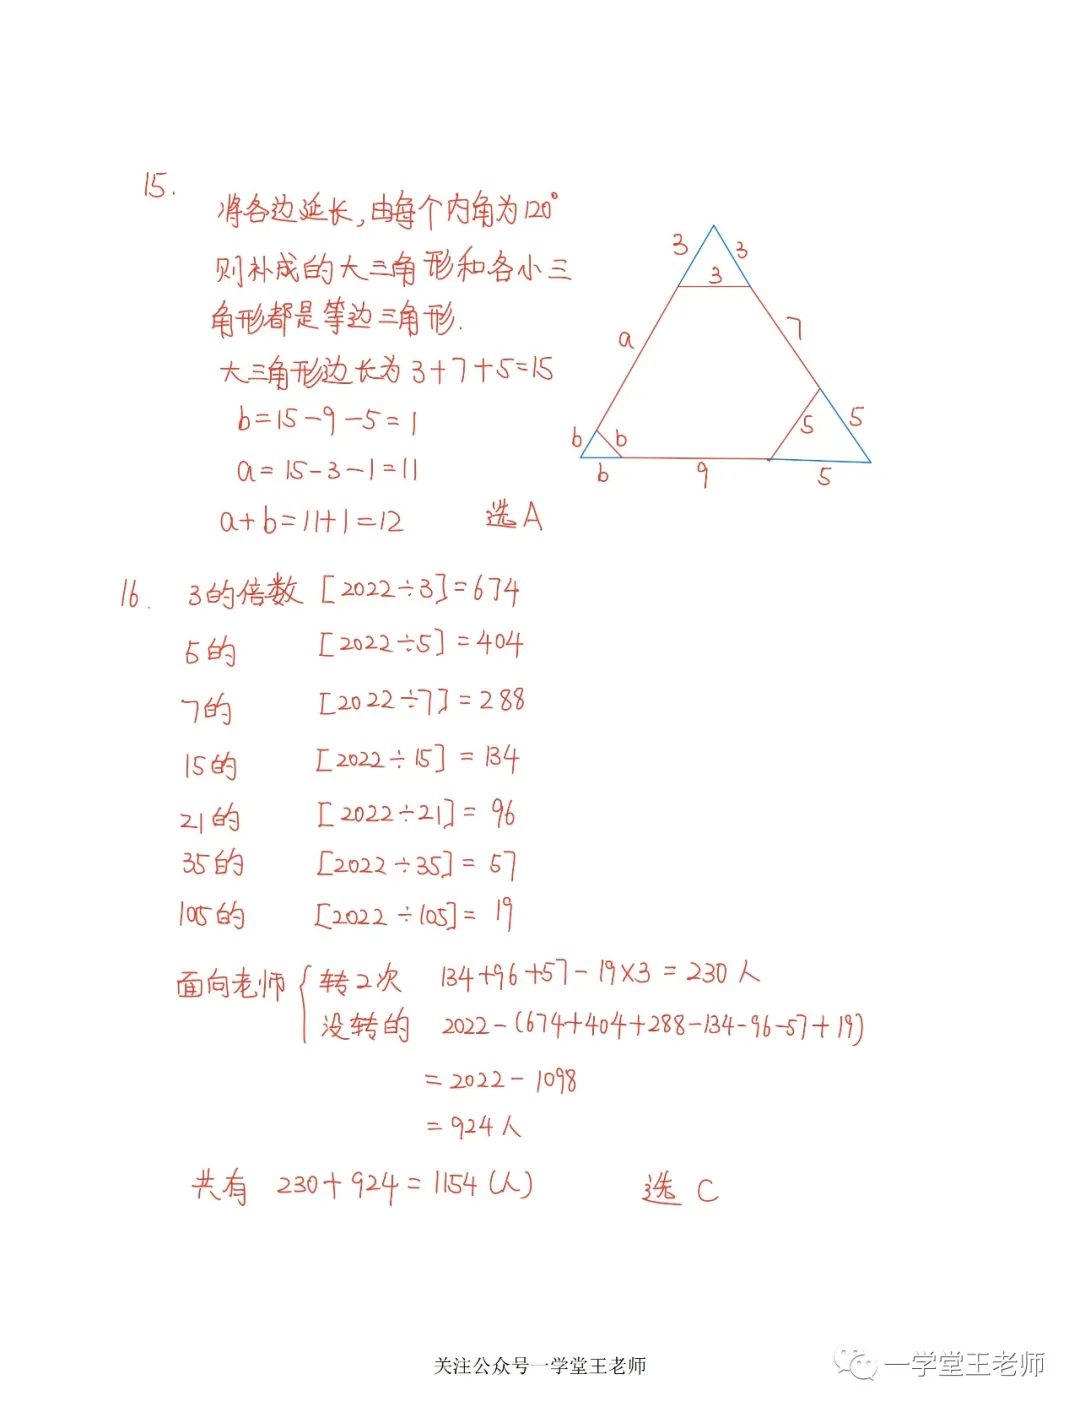 15.
将各边延长,由每个内角为120°
则补成的大三角形和各小三
角形都是等边三角形.
大三角形边长为3+7+5=15
b=15-9-5=1
a=15-3-1=11
a+b=11+1=12 选A
3 3
3
7
a
5 5
b b
b 9 5
16. 3的倍数 [2022÷3]=674
5的 [2022÷5]=404
7的 [2022÷7]=288
15的 [2022÷15]=134
21的 [2022÷21]=96
35的 [2022÷35]=57
105的 [2022÷105]=19
面向老师 { 转2次 134+96+57-19×3=230人
没转的 2022-(674+404+288-134-96-57+19)
=2022-1098
=924人
共有 230+924=1154(人) 选 C
关注公众号一学堂王老师
一学堂王老师